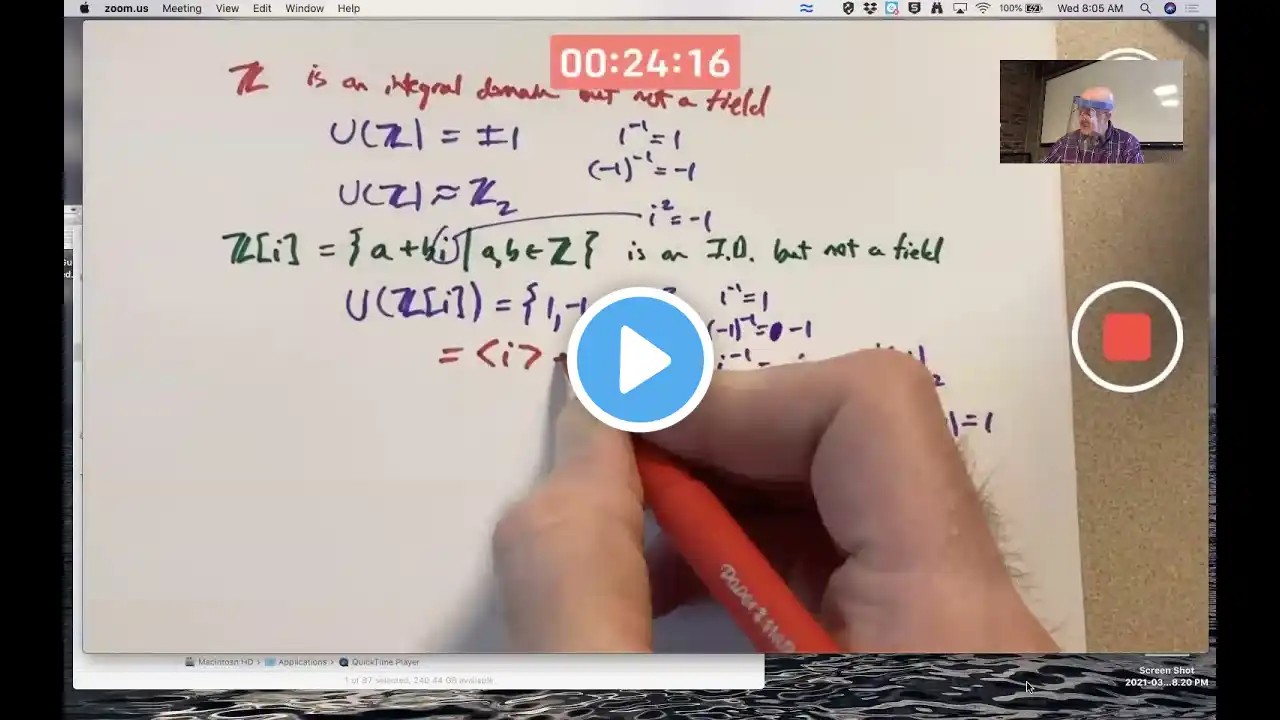 zoom.us Meeting View Edit Window Help 100% Wed 8:05 AM
00:24:16
ℤ is an integral domain but not a field
U(ℤ) = ±1 1⁻¹ = 1
(-1)⁻¹ = -1
U(ℤ) ≈ ℤ₂
i² = -1
ℤ[i] = {a + bi | a, b ∈ ℤ} is an I.D. but not a field
U(ℤ[i]) = {1, -1 } 1⁻¹ = 1
(-1)⁻¹ = -1
= <i> i⁻¹ =
= 1
PaperMate
Macintosh HD › Applications › QuickTime Player
1 of 87 selected, 240.44 GB available
Screen Shot
2021-03...8.20 PM